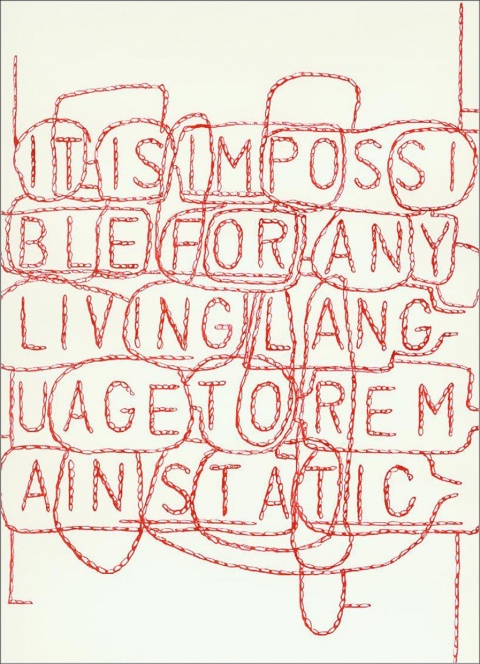 IT IS IMPOSSI
BLE FOR ANY
LIVING LANG
UAGE TO REM
AIN STATIC